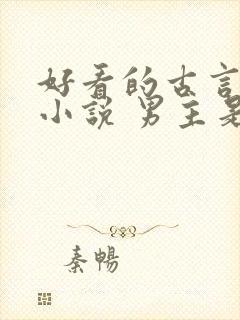 好看的古言
小说 男主是
秦暢